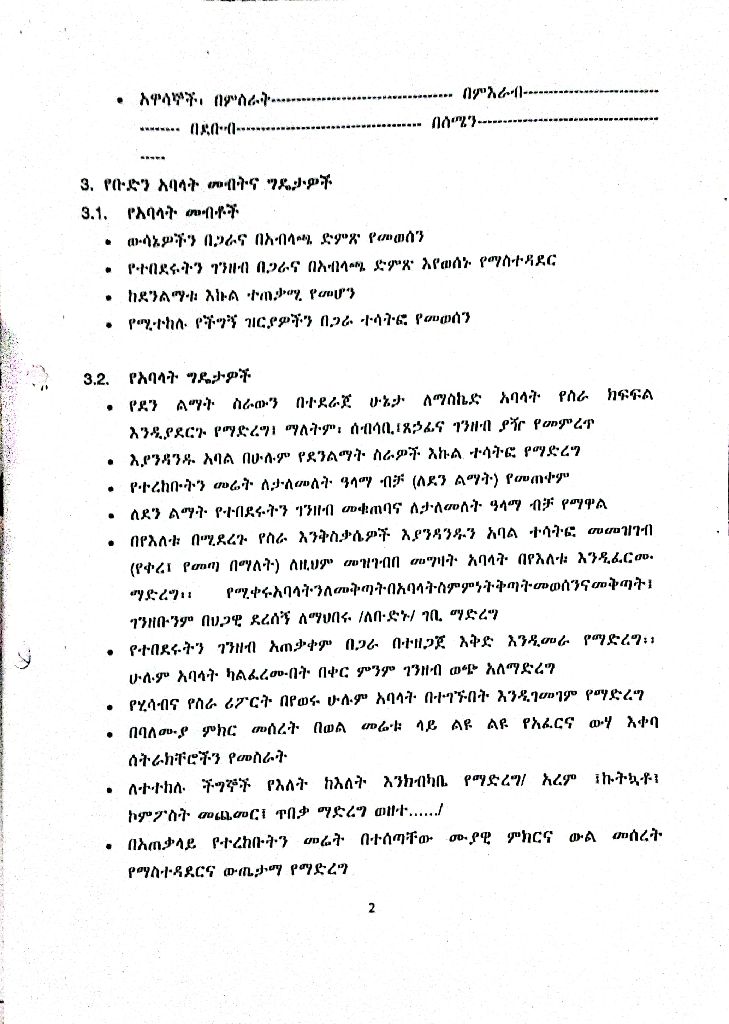 • አዋሳኞች፣ በምስራት------------------------------------ በምእራብ---------------------------
-------- በደቡብ------------------------------------- በሰሜን-----------------------------------
-----
3. የቡድን አባላት መብትና ግዴታዎች
3.1. የአባላት መብቶች
• ውሳኔዎችን በጋራና በአብላጫ ድምጽ የመወሰን
• የተበደሩትን ገንዘብ በጋራና በአብላጫ ድምጽ እየወሰኑ የማስተዳደር
• ከደንልማቱ እኩል ተጠቃሚ የመሆን
• የሚተከሉ የችግኝ ዝርያዎችን በጋራ ተሳትፎ የመወሰን
3.2. የአባላት ግዴታዎች
• የደን ልማት ስራውን በተደራጀ ሁኔታ ለማስኬድ አባላት የስራ ክፍፍል
እንዲያደርጉ የማድረግ፤ ማለትም፣ ሰብሳቢ፤ጸኃፊና ገንዘብ ያዥ የመምረጥ
• እያንዳንዱ አባል በሁሉም የደንልማት ስራዎች እኩል ተሳትፎ የማድረግ
• የተረከቡትን መሬት ለታለመለት ዓላማ ብቻ (ለደን ልማት) የመጠቀም
• ለደን ልማት የተበደሩትን ገንዘብ መቁጠባና ለታለመለት ዓላማ ብቻ የማዋል
• በየእለቱ በሚደረጉ የስራ እንቅስቃሴዎች እያንዳንዱን አባል ተሳትፎ መመዝገብ
(የቀረ፤ የመጣ በማለት) ለዚህም መዝገብበ መግዛት አባላት በየእለቱ እንዲፈርሙ
ማድረግ፡፡ የሚቀሩአባላትንለመቅጣትበአባላትስምምነትቅጣትመወሰንናመቅጣት፤
ገንዘቡንም በህጋዊ ደረሰኝ ለማህበሩ /ለቡድኑ/ ገቢ ማድረግ
• የተበደሩትን ገንዘብ አጠቃቀም በጋራ በተዘጋጀ እቅድ እንዲመራ የማድረግ፡፡
ሁሉም አባላት ካልፈረሙበት በቀር ምንም ገንዘብ ወጭ አለማድረግ
• የሂሳብና የስራ ሪፖርት በየወሩ ሁሉም አባላት በተገኙበት እንዲገመገም የማድረግ
• በባለሙያ ምክር መሰረት በወል መሬቱ ላይ ልዩ ልዩ የአፈርና ውሃ እቀባ
ስትራክቸሮችን የመስራት
• ለተተከሉ ችግኞች የእለት ከእለት እንክብካቤ የማድረግ/ አረም ፤ኩትኳቶ፤
ኮምፖስት መጨመር፤ ጥበቃ ማድረግ ወዘተ....../
• በአጠቃላይ የተረከቡትን መሬት በተሰጣቸው ሙያዊ ምክርና ውል መሰረት
የማስተዳደርና ውጤታማ የማድረግ
2